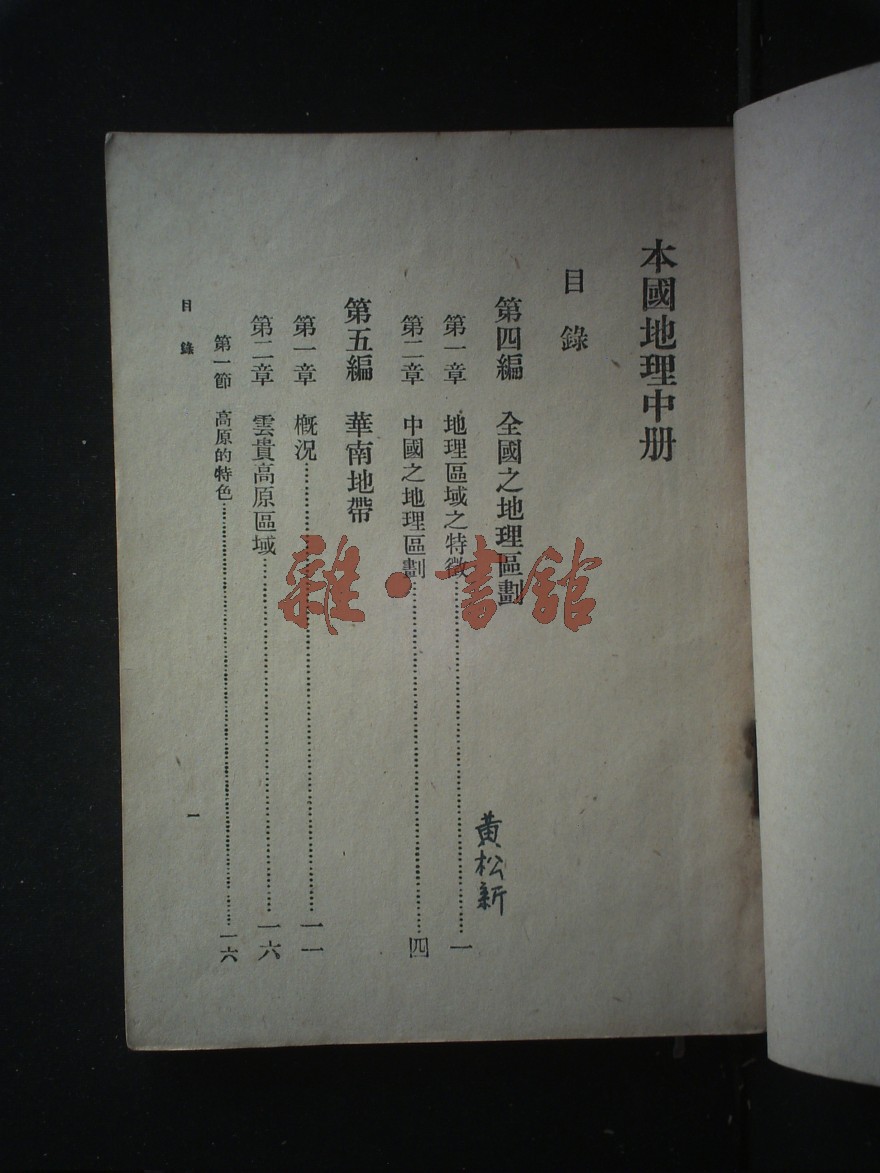 本國地理中册
目錄
第四編 全國之地理區劃
第一章 地理區域之特徵…………一
第二章 中國之地理區劃…………四
第五編 華南地帶
第一章 概況…………一一
第二章 雲貴高原區域…………一六
第一節 高原的特色…………一六
目錄
一
黃松新
雜·書舘